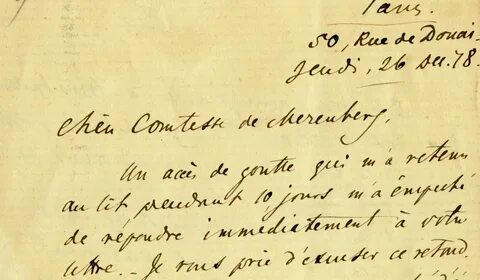 Paris.
50, Rue de Douai.
Jeudi, 26 Dec. 78.
Chère Comtesse de Merenberg,
Un accès de goutte qui m'a retenu
au lit pendant 10 jours m'a empêché
de répondre immédiatement à votre
lettre. – Je vous prie d'excuser ce retard.